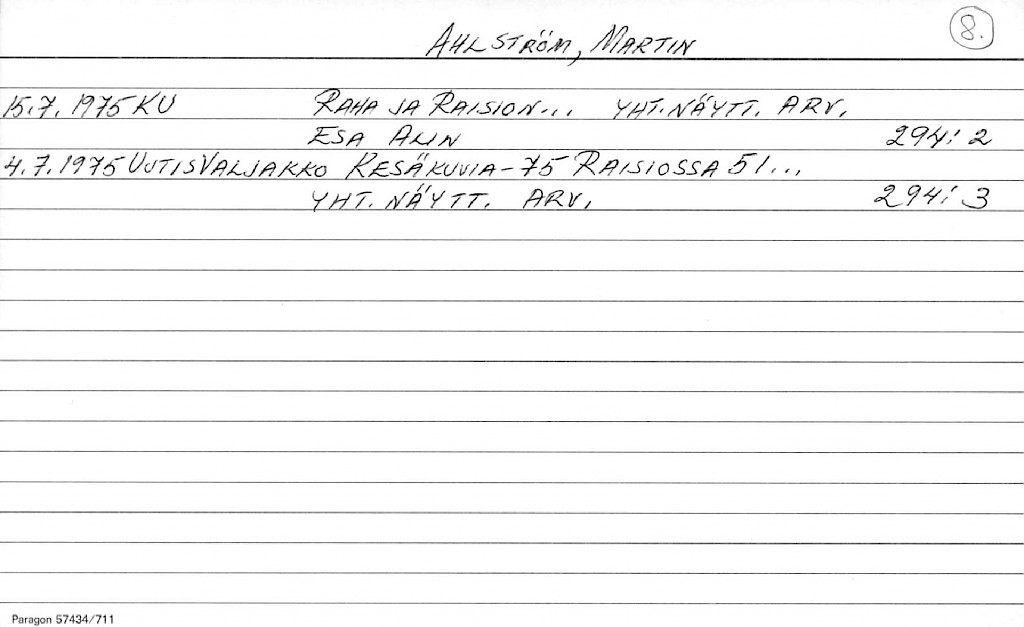 8.
AHLSTRÖM, MARTIN
15.7.1975 KU RAHA JA RAISION... YHT.NÄYTT. ARV.
ESA ALIN 294: 2
4.7.1975 UUTISVALJAKKO KESÄKUVIA-75 RAISIOSSA 51...
YHT.NÄYTT. ARV. 294: 3
Paragon 57434/711